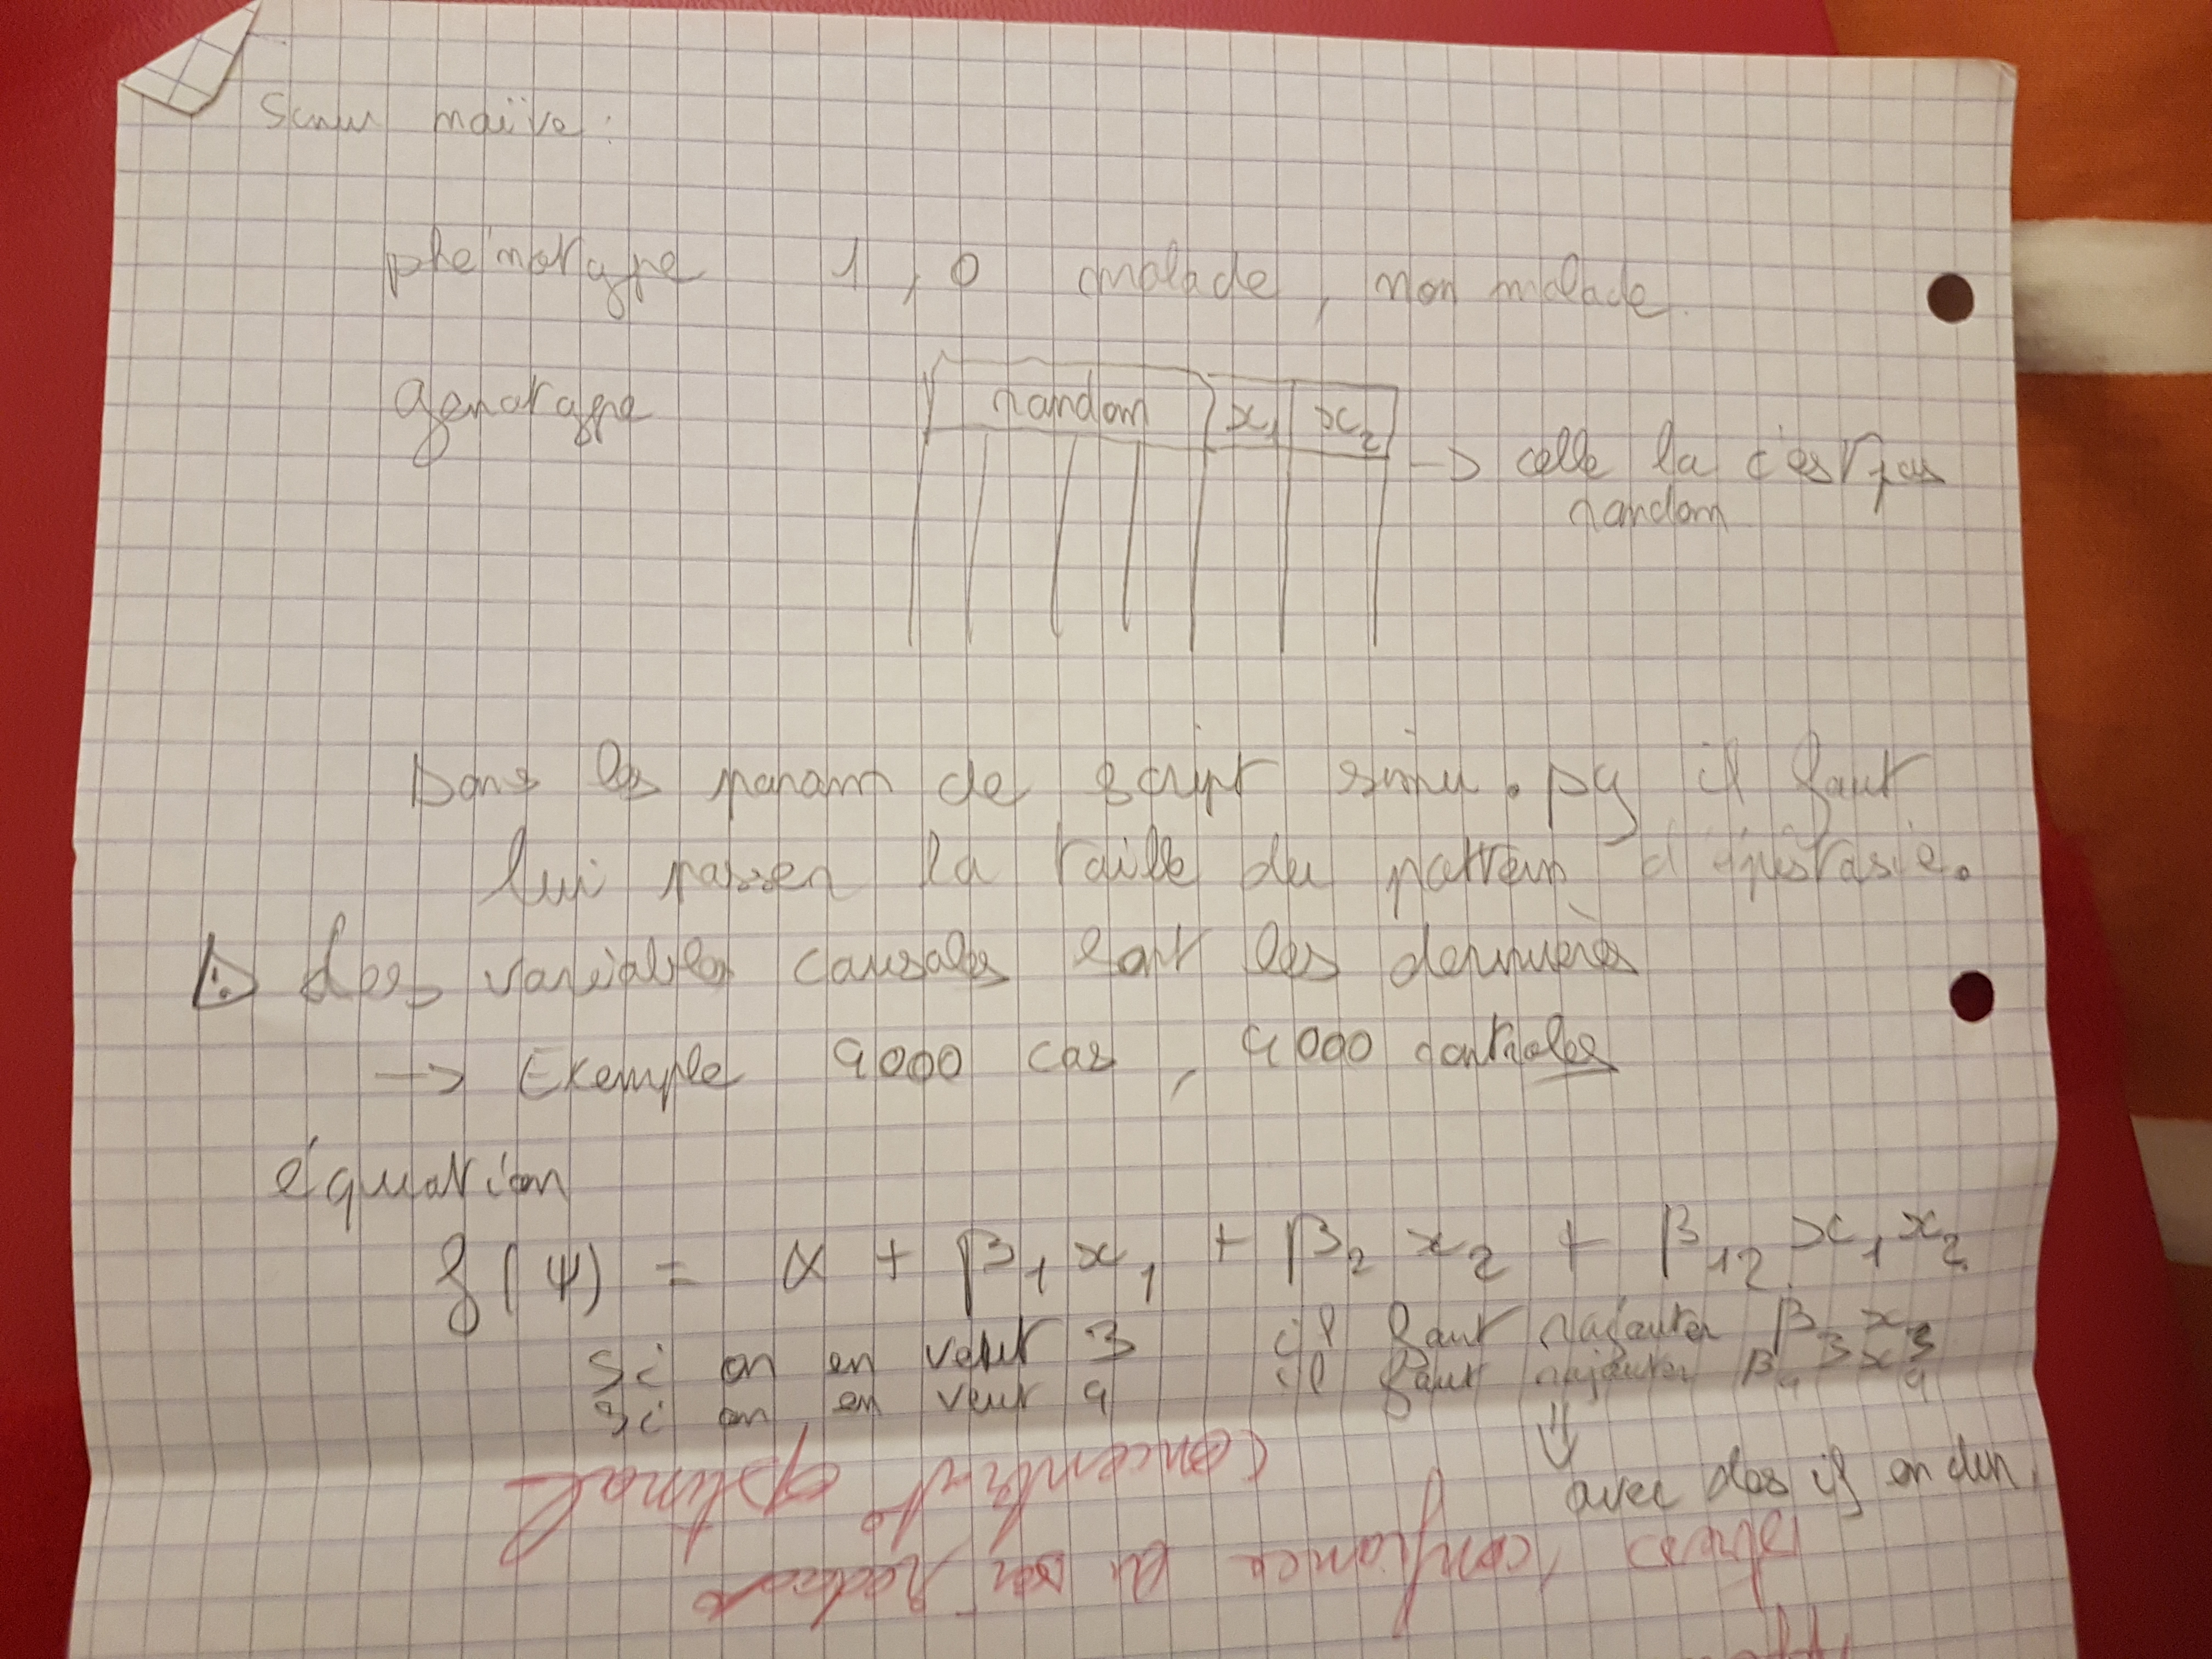 Simu naïve :
phénotype 1, 0 malade, non malade.
génotype random x1 x2 → celle la c'est pas
random
Dans les param de script simu.py il faut
lui passer la taille du pattern d'épistasie.
⚠ Les variables causales sont les dernières
→ Exemple 4000 cas, 4000 controles
équation
g(Ψ) = α + β1x1 + β2x2 + β12x1x2
Si on en veut 3 il faut rajouter β3x3
Si on en veut 4 il faut rajouter β4x4
⇓
avec plos if on dim
concentrate optimal
confiance